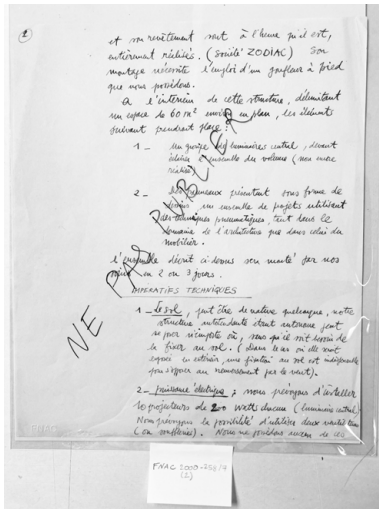 2
et son revêtement sont à l'heure qu'il est,
entièrement réalisés. (Société ZODIAC) Son
montage nécessite l'emploi d'un gonfleur à pied
que nous possédons.
A l'intérieur de cette structure, délimitant
un espace de 60 m² environ en plan, les éléments
suivant prendront place :
1 _ Un groupe de luminaires central, devant
éclairer l'ensemble du volume (non encore
réalisé)
2 _ Des panneaux présentant sous forme de
dessins, un ensemble de projets utilisant
des techniques pneumatiques tant dans le
domaine de l'architecture que dans celui du
mobilier.
L'ensemble décrit ci dessus sera monté par nos
soins en 2 ou 3 jours.
IMPERATIFS TECHNIQUES
1 _ Le sol, peut être de nature quelconque, notre
structure autotendante étant autonome peut
se poser n'importe où, sans qu'il soit besoin de
la fixer au sol. (dans le cas où elle serait
exposée en extérieur, une fixation au sol est indispensable
pour s'opposer au renversement par le vent).
2 _ puissance électrique ; nous prévoyons d'installer
10 projecteurs de 200 watts chacun (luminaire central)
Nous prévoyons la possibilité d'utiliser deux
(ou souffleries). Nous ne possédons aucun de ces
NE PAS PUBLIER
FNAC
FNAC 2000-258/9
(2)